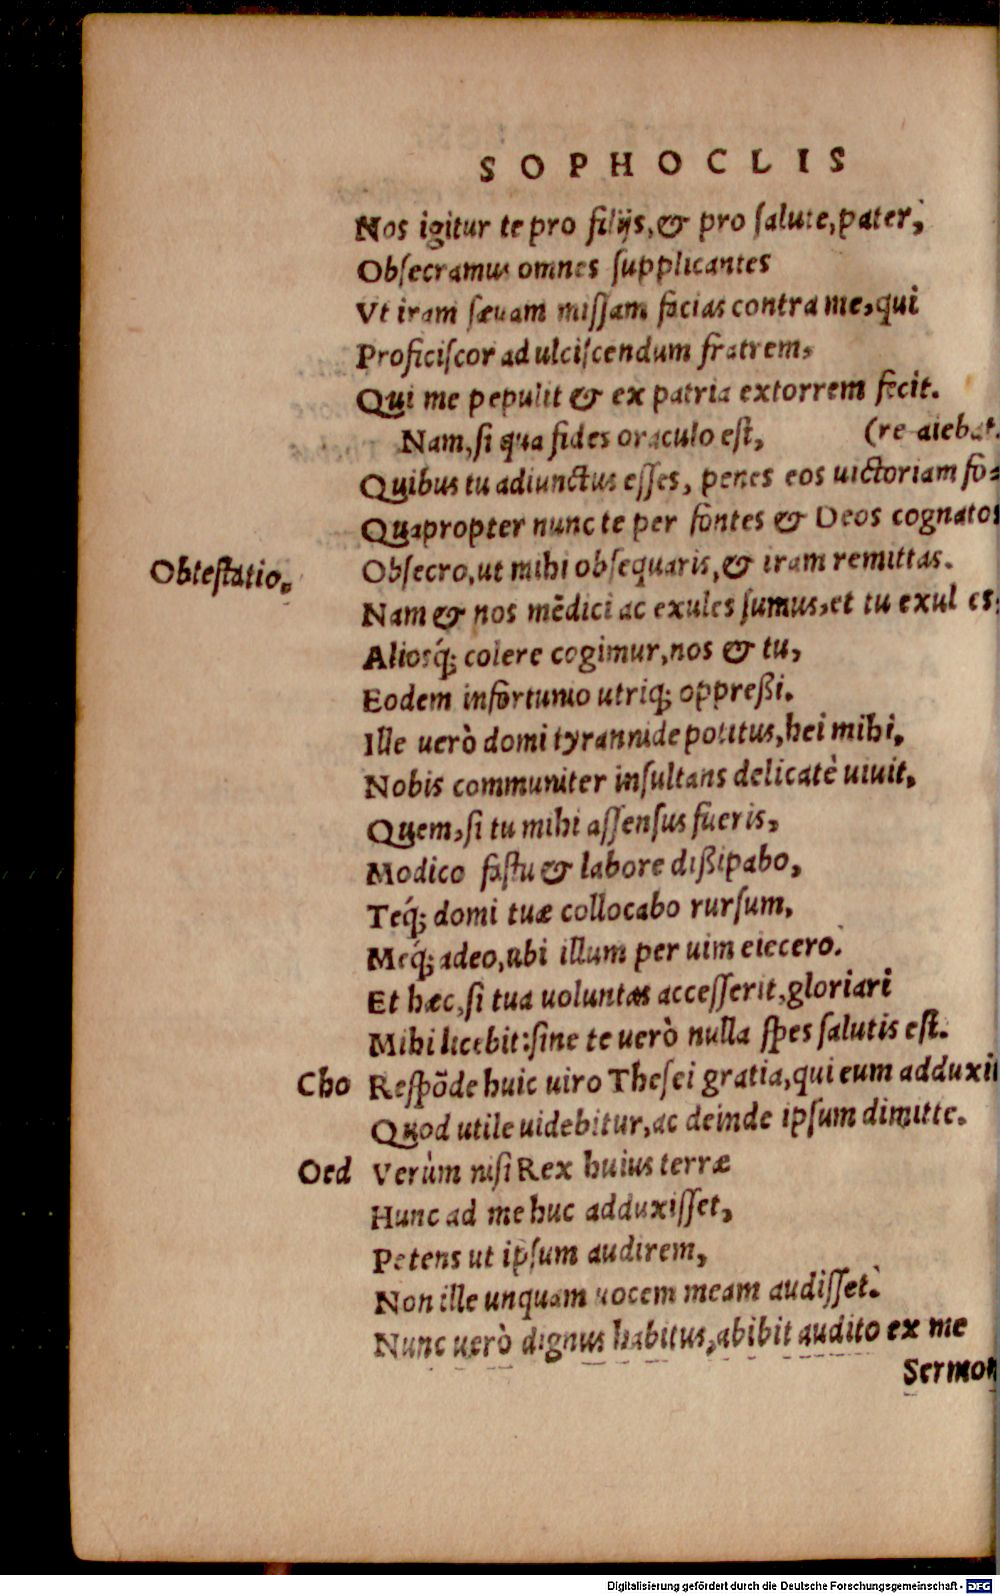 SOPHOCLIS
Nos igitur te pro filijs, & pro salute, pater,
Obsecramus omnes supplicantes
Vt iram sæuam missam facias contra me, qui
Proficiscor ad ulciscendum fratrem,
Qui me pepulit & ex patria extorrem fecit.
Nam, si qua fides oraculo est, (re aiebat.
Quibus tu adiunctus esses, penes eos uictoriam fo-
Quapropter nunc te per fontes & Deos cognatos
Obtestatio. Obsecro, ut mihi obsequaris, & iram remittas.
Nam & nos mẽdici ac exules sumus, et tu exul es:
Aliosq́; colere cogimur, nos & tu,
Eodem infortunio utriq; oppreßi.
Ille uerò domi tyrannide potitus, hei mihi,
Nobis communiter insultans delicatè uiuit,
Quem, si tu mihi assensus fueris,
Modico fastu & labore dißipabo,
Teq́; domi tuæ collocabo rursum,
Meq́; adeo, ubi illum per uim eiecero.
Et hæc, si tua uoluntas accesserit, gloriari
Mihi licebit: sine te uerò nulla spes salutis est.
Cho Respõde huic uiro Thesei gratia, qui eum adduxit
Quod utile uidebitur, ac deinde ipsum dimitte.
Oed Verùm nisi Rex huius terræ
Hunc ad me huc adduxisset,
Petens ut ipsum audirem,
Non ille unquam uocem meam audisset.
Nunc uerò dignus habitus, abibit audito ex me
Sermon
Digitalisierung gefördert durch die Deutsche Forschungsgemeinschaft - DFG